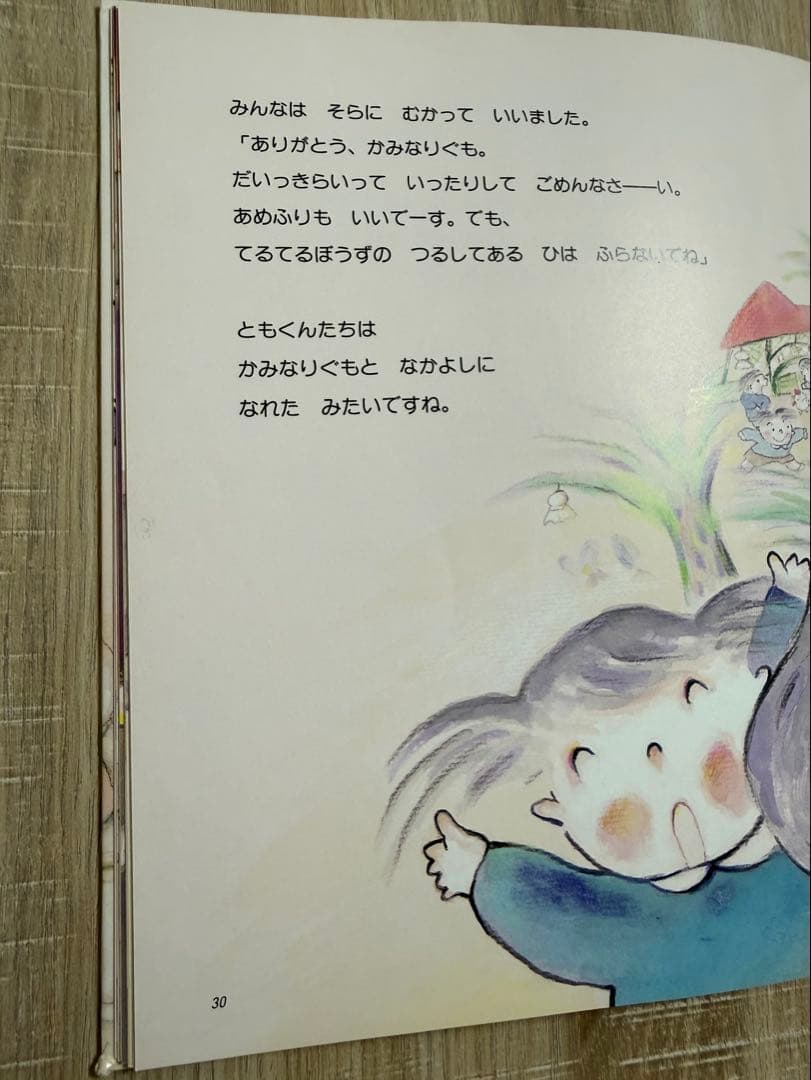 みんなは　そらに　むかって　いいました。
「ありがとう、かみなりぐも。
だいっきらいって　いったりして　ごめんなさ――い。
あめふりも　いいでーす。でも、
てるてるぼうずの　つるしてある　ひは　ふらないでね」
ともくんたちは
かみなりぐもと　なかよしに
なれた　みたいですね。
30